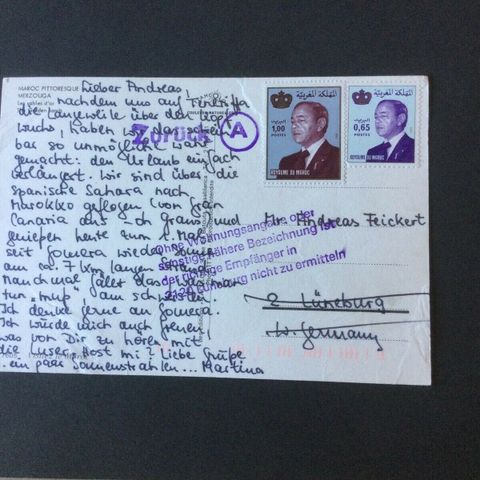 MAROC PITTORESQUE
MERZOUGA
Les sables d'or
Lieber Andreas!
nachdem uns auf Teneriffa
die Langeweile über den Kopf
wuchs, haben wir das schein
bar so unmögliche wahr
gemacht: den Urlaub einfach
verlängert. Wir sind über die
spanische Sahara nach
Marokko geflogen (von Gran
Canaria aus - ch grans) und
genießen heute zum 1. Mal
seit Gomera wieder Sonne
am ca. 7 km langen Strand.
Manchmal fällt das
tun "mup" am schwersten
Ich denke gerne an Gomera.
Ich würde mich auch freuen
was von Dir zu hören mit
die Luser. Host mi? Liebe Grüße
.. ein paar Sonnenstrahlen... Martina
Zurück
A
المملكة المغربية
البريد
1,00
POSTES
ROYAUME DU MAROC
المملكة المغربية
البريد
0,65
POSTES
ROYAUME DU MAROC
Mr. Andreas Feickert
Ohne Wohnungsangabe oder
sonstige nähere Bezeichnung ist
der richtige Empfänger in
2120 Lüneburg nicht zu ermitteln
2 Lüneburg
W. Germany